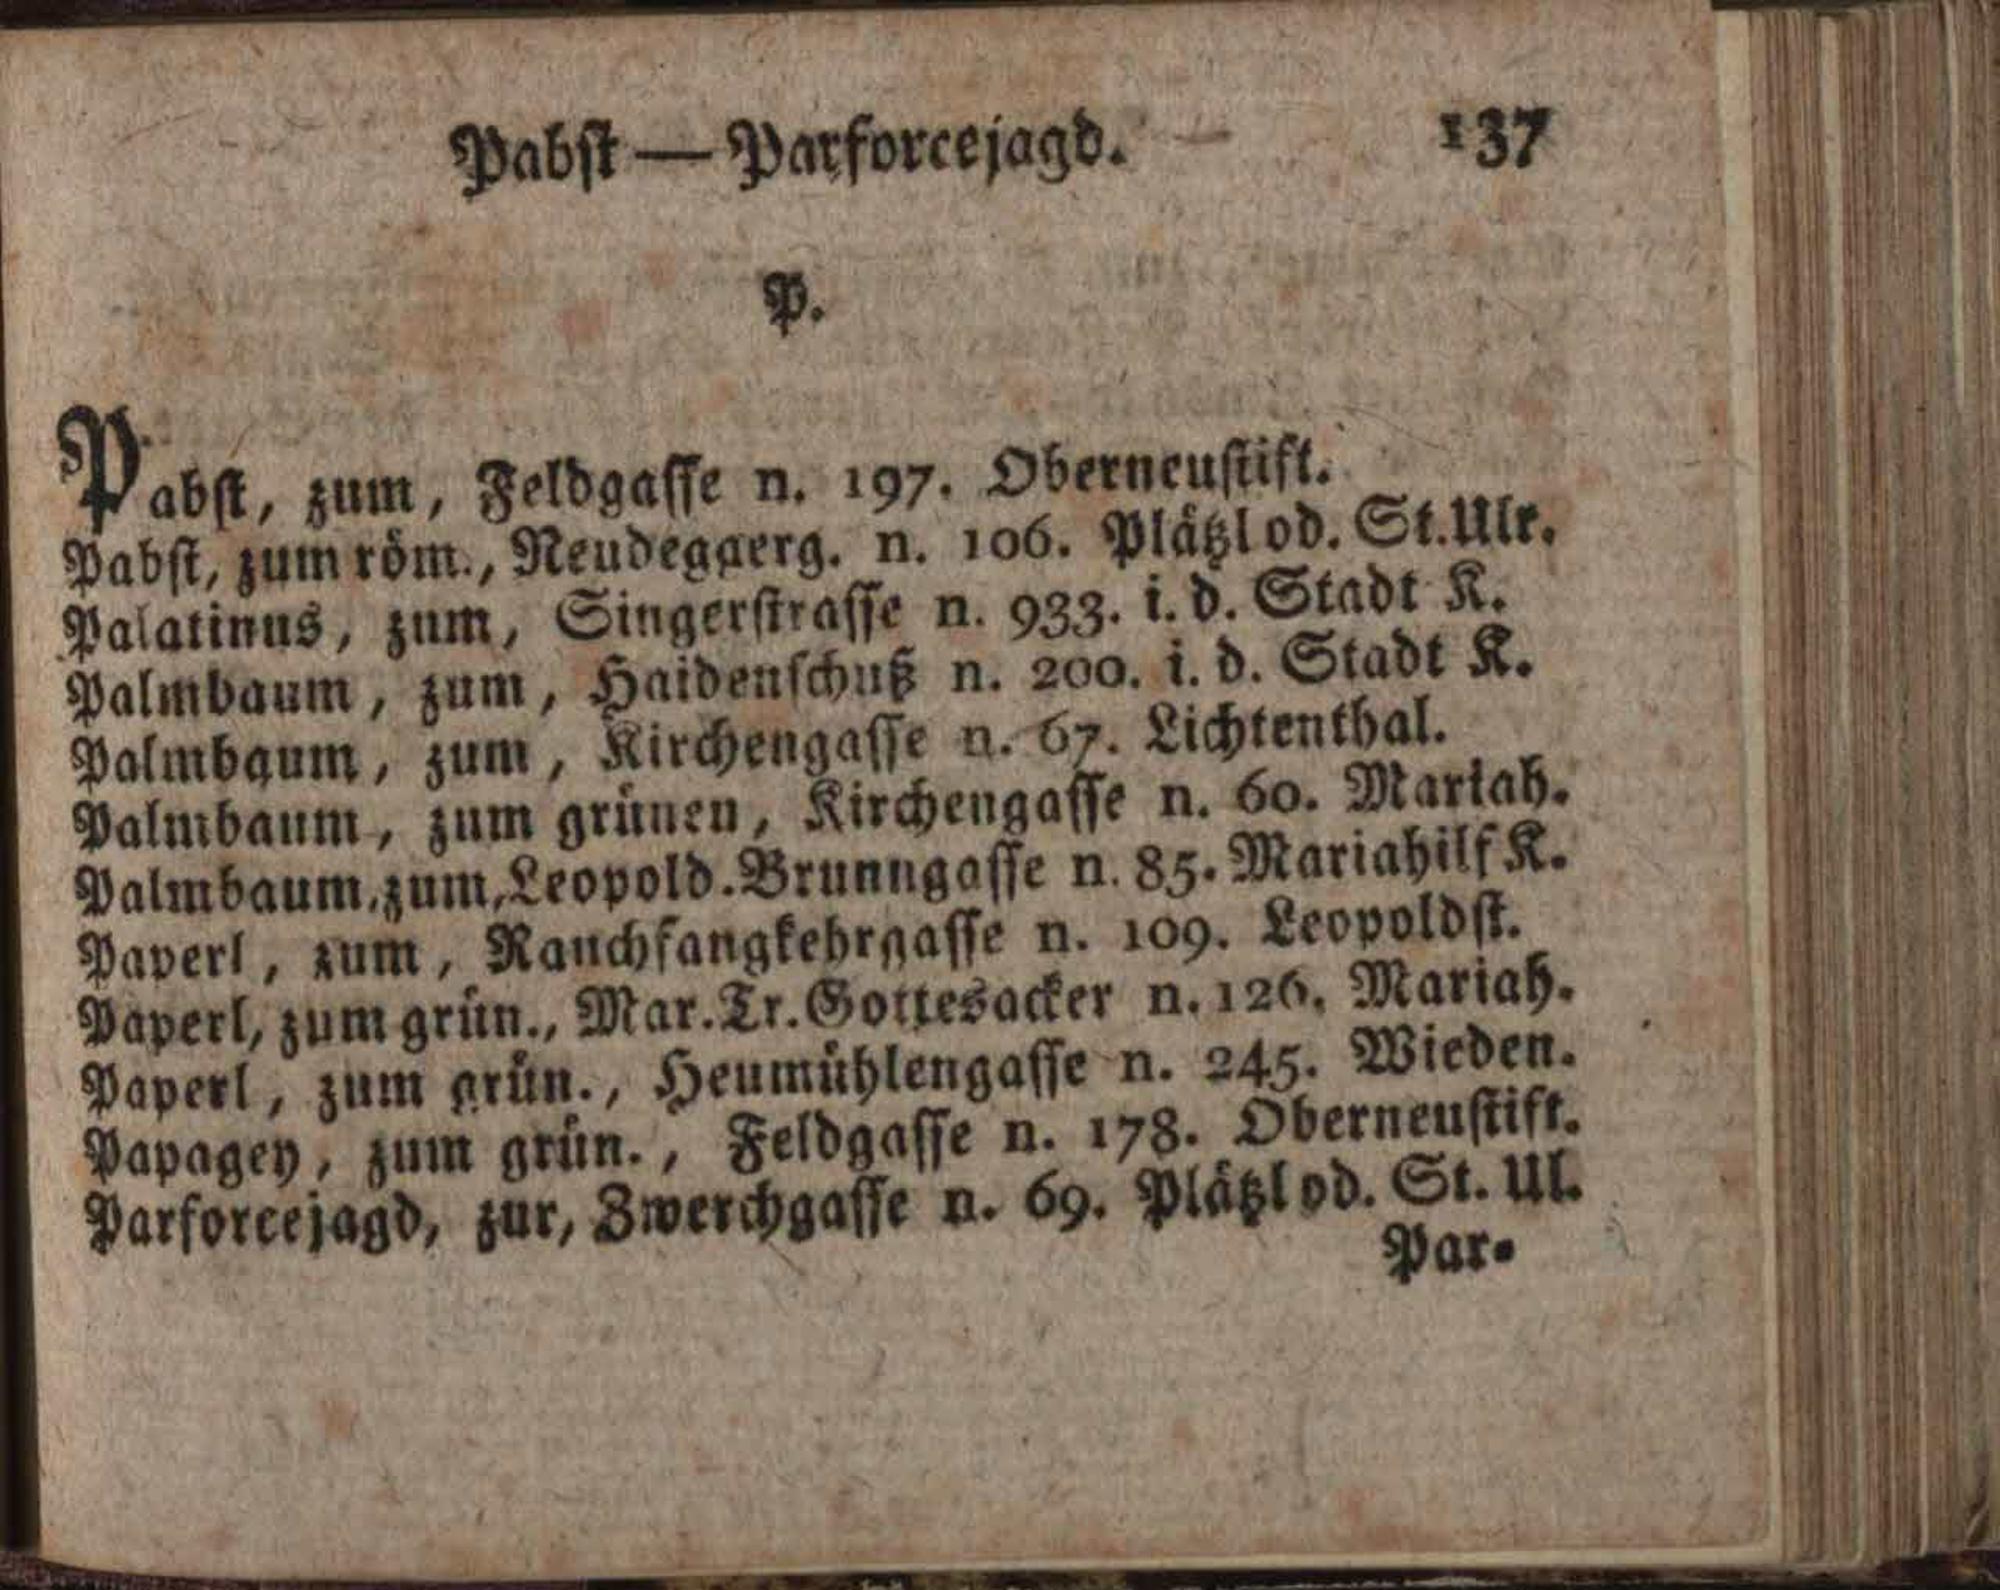 Pabst — Parforcejagd. 137
P.
Pabst, zum, Feldgasse n. 197. Oberneustift.
Pabst, zum röm., Neudeggerg. n. 106. Plätzl od. St. Ulr.
Palatinus, zum, Singerstrasse n. 933. i. d. Stadt K.
Palmbaum, zum, Haidenschuß n. 200. i. d. Stadt K.
Palmbaum, zum, Kirchengasse n. 67. Lichtenthal.
Palmbaum, zum grünen, Kirchengasse n. 60. Mariah.
Palmbaum, zum, Leopold. Brunngasse n. 85. Mariahilf K.
Paperl, zum, Rauchfangkehrgasse n. 109. Leopoldst.
Paperl, zum grün., Mar. Tr. Gottesacker n. 126. Mariah.
Paperl, zum grün., Heumühlengasse n. 245. Wieden.
Papagey, zum grün., Feldgasse n. 178. Oberneustift.
Parforcejagd, zur, Zwerchgasse n. 69. Plätzl od. St. Ul.
Par-